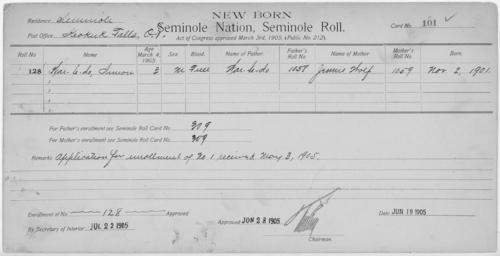 NEW BORN
Residence Seminole
Seminole Nation, Seminole Roll.
Card No. 101 ✓
Post Office Keokuk Falls, O.T.
Act of Congress approved March 3rd, 1905, (Public 212).
Roll No Name Age March 4, 1905 Sex Blood Name of Father Father's Roll No Name of Mother Mother's Roll No Born
128 Har-le-do, Simon 3 M Full Har-le-do 1058 Jennie Wolf 1059 Nov 2, 1901
For Father's enrollment see Seminole Roll Card No 309
For Mother's enrollment see Seminole Roll Card No 309
Remarks Application for enrollment of No 1 received May 3, 1905.
Enrollment of No. 128 Approved
Approved JUN 28 1905
Date JUN 19 1905
By Secretary of Interior JUL 22 1905
Chairman.